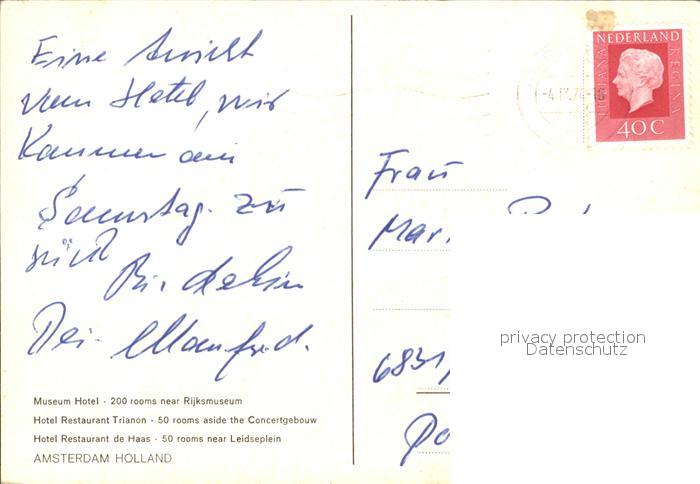 Eine Ansicht
vom Hotel, wir
kommen am
Samstag. zu
rück
Bis dahin
Dei Manfred.
Museum Hotel - 200 rooms near Rijksmuseum
Hotel Restaurant Trianon - 50 rooms aside the Concertgebouw
Hotel Restaurant de Haas - 50 rooms near Leidseplein
AMSTERDAM HOLLAND
NEDERLAND
JULIANA REGINA
40 C
-4.IX.74-18
Frau
Mar
6831,
Po
privacy protection
Datenschutz